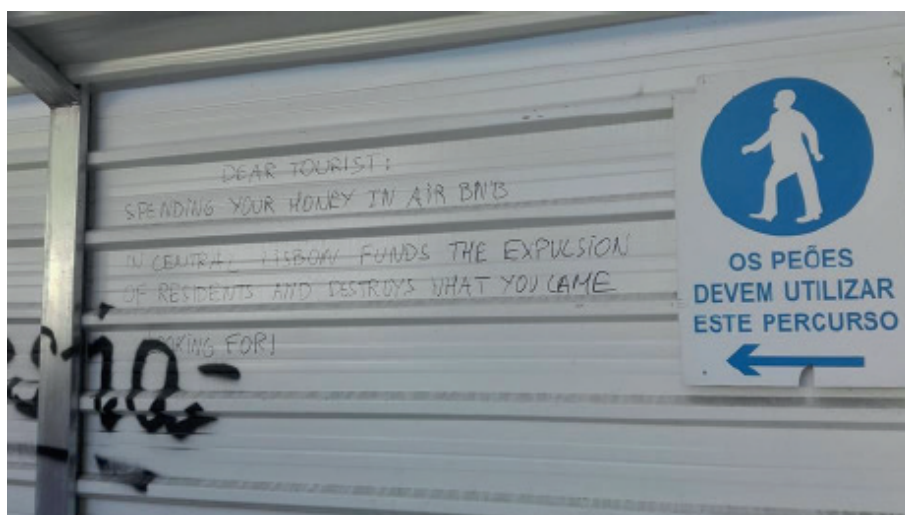 DEAR TOURIST:
SPENDING YOUR MONEY IN AIR BNB
IN CENTRAL LISBON FUNDS THE EXPULSION
OF RESIDENTS AND DESTROYS WHAT YOU CAME
LOOKING FOR!
OS PEÕES
DEVEM UTILIZAR
ESTE PERCURSO